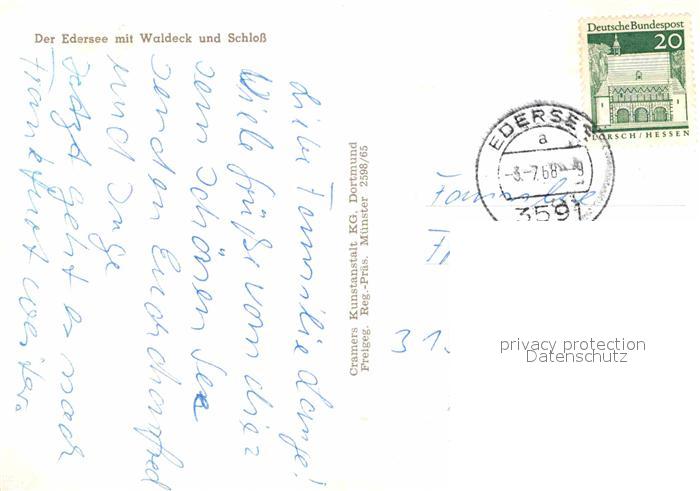 Der Edersee mit Waldeck und Schloß
Deutsche Bundespost
20
LORSCH/HESSEN
EDERSEE
a
-3.-7.68-9
3591
Liebe Familie Lange!
Viele Grüße von hier
dem schönen See
senden Euch Manfred
und Inge
Jetzt geht es nach
Frankfurt weiter.
Cramers Kunstanstalt KG. Dortmund
Freigeg. Reg.-Präs. Münster 2598/65
Familie
31.
privacy protection
Datenschutz